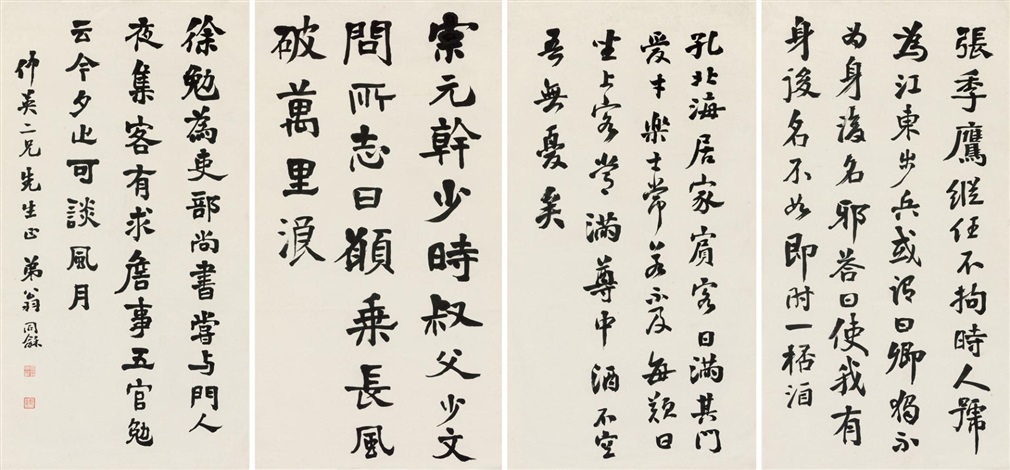 張季鷹縱任不拘時人號
為江東步兵或謂曰卿獨不
為身後名邪答曰使我有
身後名不如即时一桮酒
孔北海居家賓客日滿其門
愛才樂士常若不及每歎曰
坐上客常滿尊中酒不空
吾無憂矣
宗元幹少時叔父少文
問所志曰願乘長風
破萬里浪
徐勉為吏部尚書嘗与門人
夜集客有求詹事五官勉
云今夕止可談風月
仲英二兄先生正 弟翁同龢